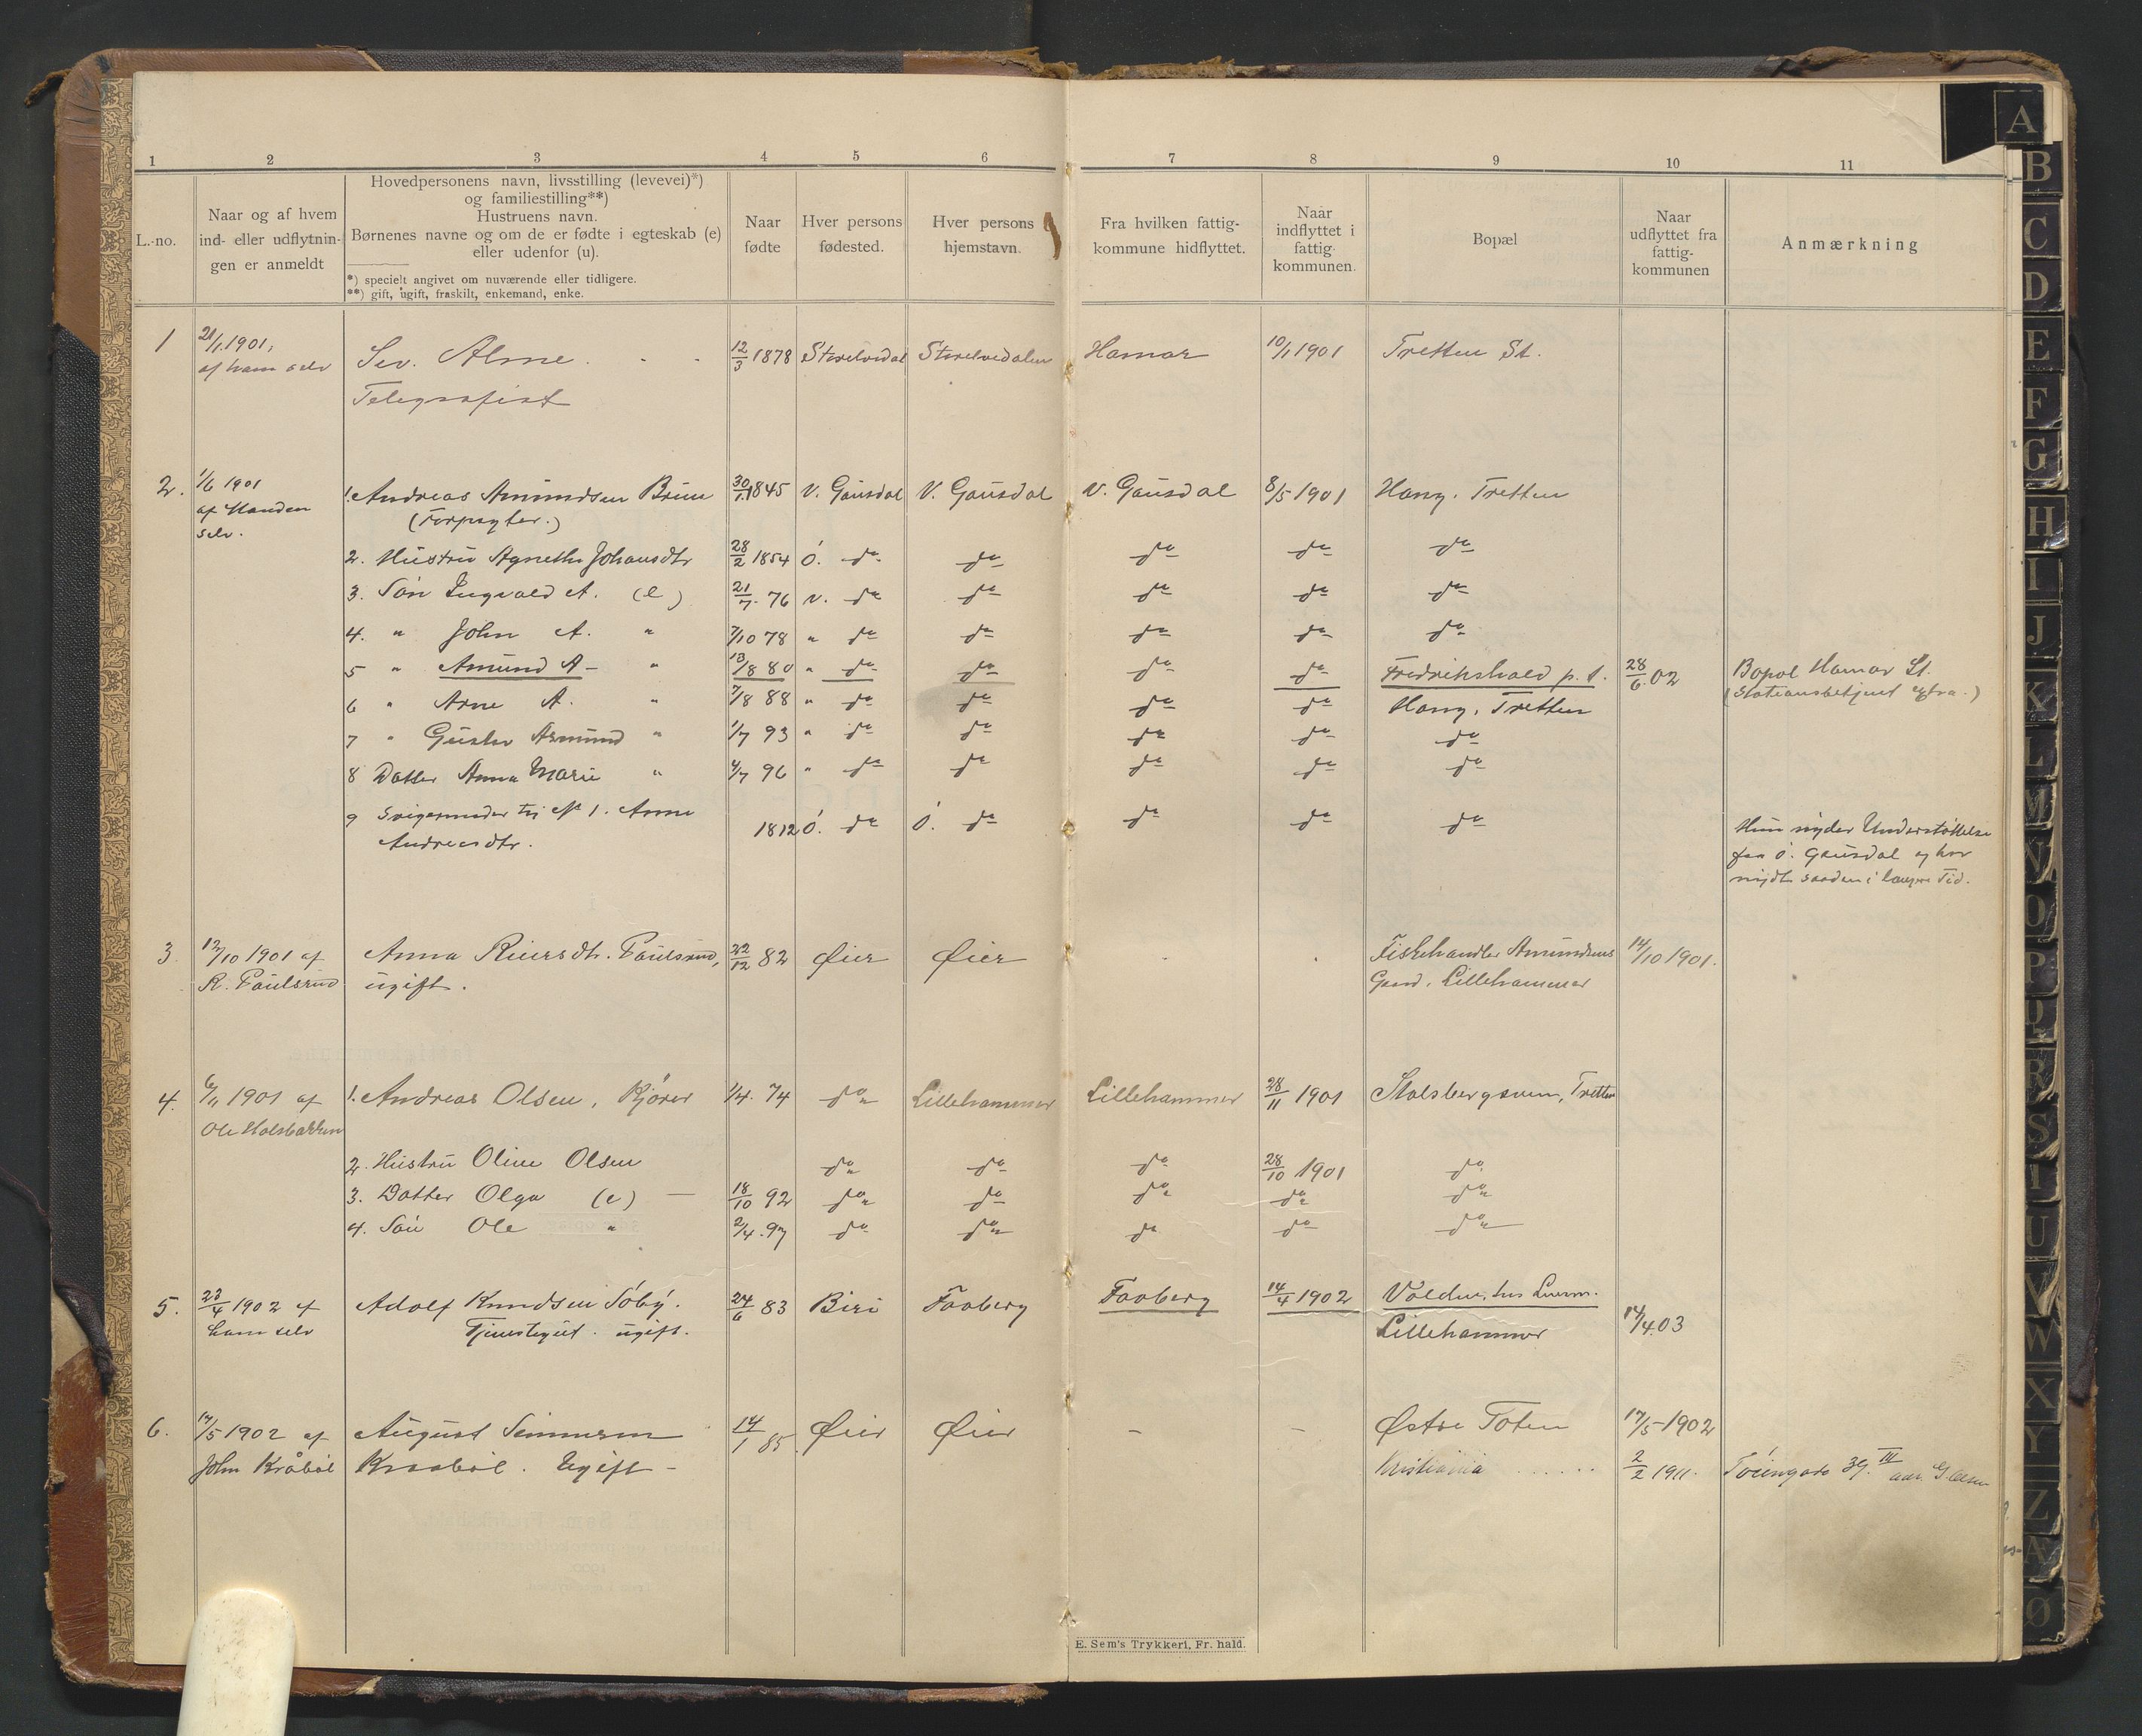 1 2 3 4 5 6 7 8 9 10 11
L.-no.
Naar og af hvem
ind- eller udflytnin-
gen er anmeldt
Hovedpersonens navn, livsstilling (levevei)*)
og familiestilling**)
Hustruens navn.
Børnenes navne og om de er fødte i egteskab (e)
eller udenfor (u).
*) specielt angivet om nuværende eller tidligere.
**) gift, ugift, fraskilt, enkemand, enke.
Naar
fødte
Hver persons
fødested.
Hver persons
hjemstavn.
Fra hvilken fattig-
kommune hidflyttet.
Naar
indflyttet i
fattig-
kommunen.
Bopæl
Naar
udflyttet fra
fattig-
kommunen
Anmærkning
1 21/1.1901, Sev. Alme. 12/3 1878 Storelvedal Storelvedalen Hamar 10/1 1901 Tretten St.
af ham selv Telegrafist
2. 1/6 1901 1. Andreas Amundsen Brun 30/11 1845 V. Gausdal V. Gausdal V. Gausdal 8/5 1901 Hong. Tretten
af Manden (Forpagter.)
selv.
2. Hustru Agnethe Johansdtr 28/2 1854 Ö. do do do do do
3. Søn Ingvald A. (e) 21/7. 76 v. do do do do do
4. " John A. " 7/10 78 " do do do do do
5 " Amund A - " 13/8 80 " do do do do Fredrikshald p. t. 28/6.02 Bopæl Hamar St.
(Stationsbetjent extra.)
6 " Arne A. " 7/8 88 " do do do do Hong, Tretten
7 " Gustav Asmund " 1/7 93 " do do do do do
8 Datter Anna Marie " 4/7 96 " do do do do do
9 Svigermoder til No 1. Anne 1812 Ö. do Ö. do do do do
Andreasdtr. Hun nyder Understøttelse
fra ö. Gausdal og har
nydt saaden i længere Tid.
3 12/10 1901 af Anna Reiersdtr. Paulsrud, 22/12 82 Øier Øier Fiskehandler Amundsens 14/10 1901.
R. Paulsrud ugift. Gaard, Lillehammer
4. 6/11 1901 af 1. Andreas Olsen, Kjører 1/4. 74 do Lillehammer Lillehammer 28/11 1901 Stalsbergsveen, Tretten
Ole Holsbakken
2. Hustru Oline Olsen do do do 28/10 1901 do
3. Datter Olga (e) — 18/10 92 do do do do do
4. Søn Ole " 2/4.97 do do do do do
5. 23/4 1902 af Adolf Knudsen Söby. 24/6 83 Biri Faaberg Faaberg 14/4 1902 Volden, hos Lensm.
ham selv Tjenestegut. ugift. Lillehammer 14/4.03
6. 17/5 1902 af August Simensen 14/1 85 Øier Øier — — Østre Toten 17/5 1902
John Kråböl Kraaböl. Ugift - Kristiania ...... 2/2 1911. Töiengade 39. III
E. Sem's Trykkeri, Fr. hald.
A
B
C
D
E
F
G
H
I
J
K
L
M
N
O
P
Q
R
S
T
U
V
W
X
Y
Z
Æ
Ø